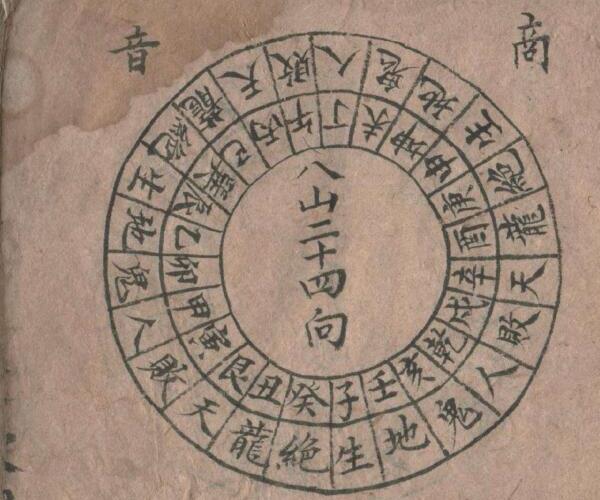 商音
八山二十四向
人鬼地生絕龍天敗人鬼地生絕龍天敗人鬼地生絕龍天敗
丁未坤申庚酉辛戌乾亥壬子癸丑艮寅甲卯乙辰巽巳丙午